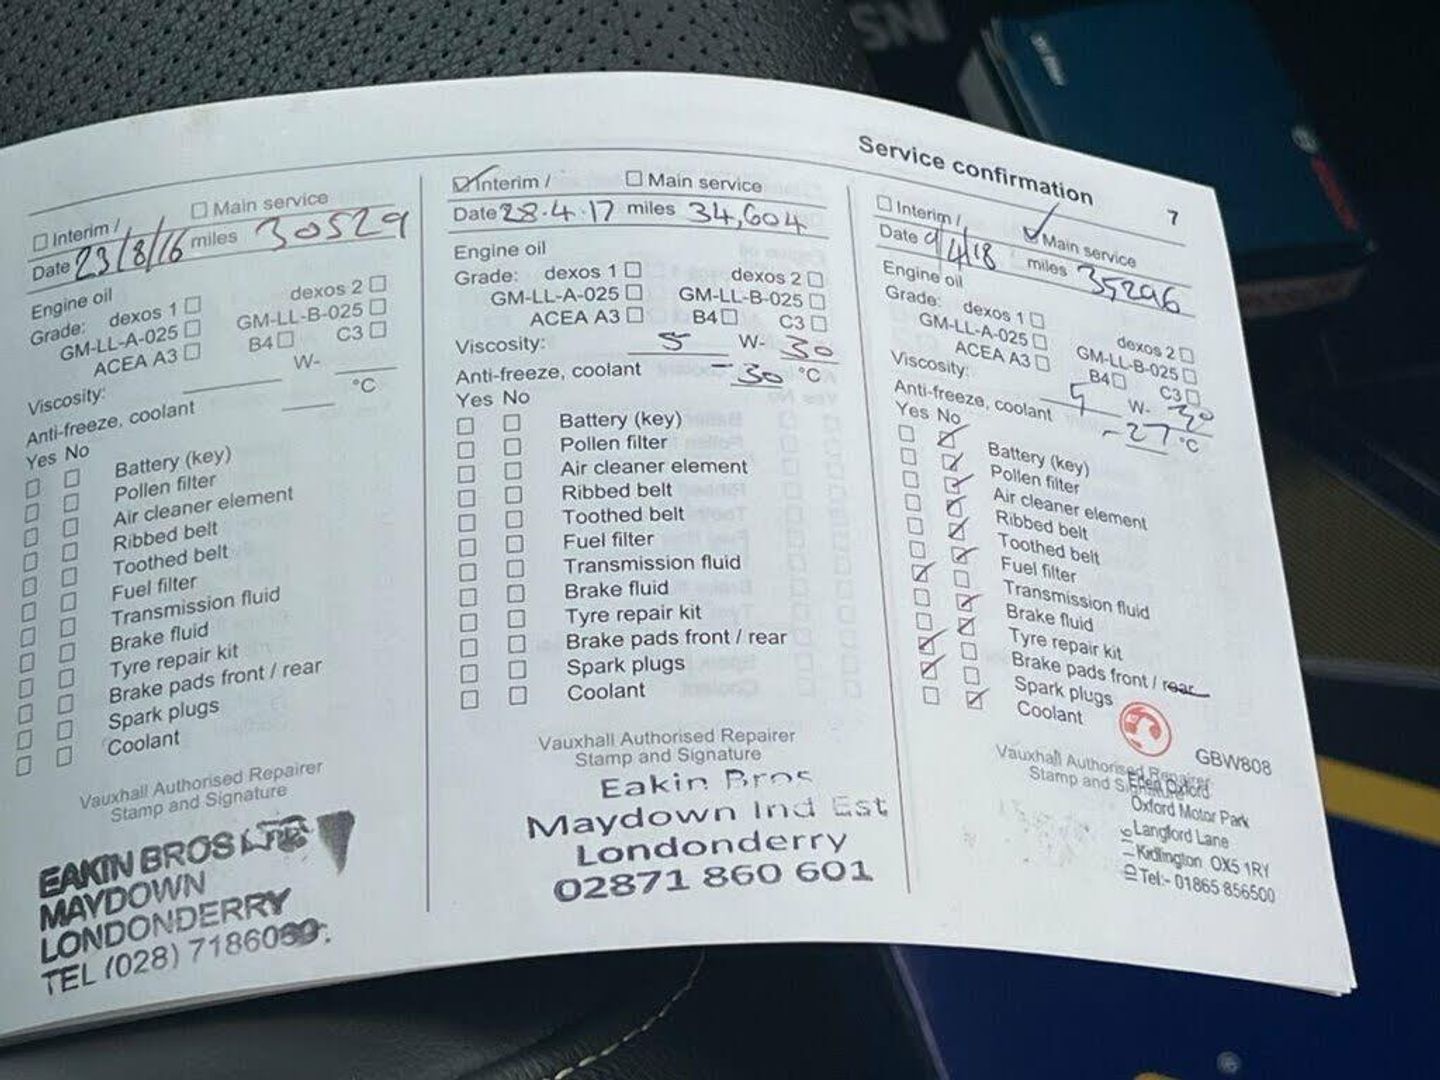 Service confirmation
7
☐ Interim / ☐ Main service
Date 23/8/16 miles 30529
Engine oil
Grade: dexos 1 ☐ dexos 2 ☐
GM-LL-A-025 ☐ GM-LL-B-025 ☐
ACEA A3 ☐ B4 ☐ C3 ☐
Viscosity: W-
Anti-freeze, coolant °C
Yes No
☐ ☐ Battery (key)
☐ ☐ Pollen filter
☐ ☐ Air cleaner element
☐ ☐ Ribbed belt
☐ ☐ Toothed belt
☐ ☐ Fuel filter
☐ ☐ Transmission fluid
☐ ☐ Brake fluid
☐ ☐ Tyre repair kit
☐ ☐ Brake pads front / rear
☐ ☐ Spark plugs
☐ ☐ Coolant
Vauxhall Authorised Repairer
Stamp and Signature
EAKIN BROS LTD
MAYDOWN
LONDONDERRY
TEL (028)
☑ Interim / ☐ Main service
Date 28.4.17 miles 34,604
Engine oil
Grade: dexos 1 ☐ dexos 2 ☐
GM-LL-A-025 ☐ GM-LL-B-025 ☐
ACEA A3 ☐ B4 ☐ C3 ☐
Viscosity: 5 W- 30
Anti-freeze, coolant -30 °C
Yes No
☐ ☐ Battery (key)
☐ ☐ Pollen filter
☐ ☐ Air cleaner element
☐ ☐ Ribbed belt
☐ ☐ Toothed belt
☐ ☐ Fuel filter
☐ ☐ Transmission fluid
☐ ☐ Brake fluid
☐ ☐ Tyre repair kit
☐ ☐ Brake pads front / rear
☐ ☐ Spark plugs
☐ ☐ Coolant
Vauxhall Authorised Repairer
Stamp and Signature
Eakin Bros
Maydown Ind Est
Londonderry
02871 860 601
☐ Interim / ☑ Main service
Date 9/4/18 miles 35296
Engine oil
Grade: dexos 1 ☐ dexos 2 ☐
GM-LL-A-025 ☐ GM-LL-B-025 ☐
ACEA A3 ☐ B4 ☐ C3 ☐
Viscosity: 5 W- 30
Anti-freeze, coolant -27 °C
Yes No
☐ ☑ Battery (key)
☐ ☑ Pollen filter
☐ ☑ Air cleaner element
☐ ☑ Ribbed belt
☐ ☑ Toothed belt
☐ ☑ Fuel filter
☑ ☐ Transmission fluid
☐ ☑ Brake fluid
☐ ☑ Tyre repair kit
☑ ☐ Brake pads front / rear
☑ ☐ Spark plugs
☐ ☑ Coolant
GBW808
Vauxhall Authorised Repairer
Stamp and Signature
Oxford
Oxford Motor Park
Langford Lane
Kidlington OX5 1RY
Tel:- 01865 856500